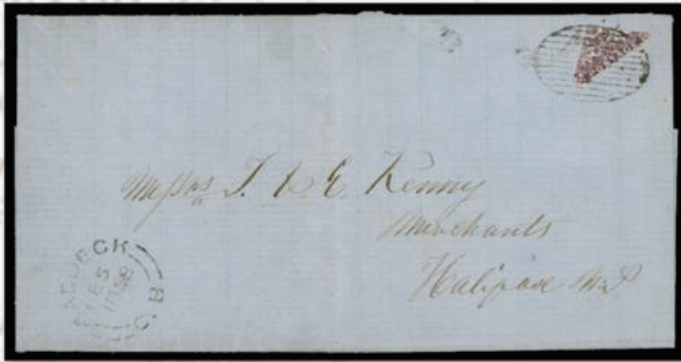 Messrs T. & E. Kenny
Merchants
Halifax
ADDECK
1858